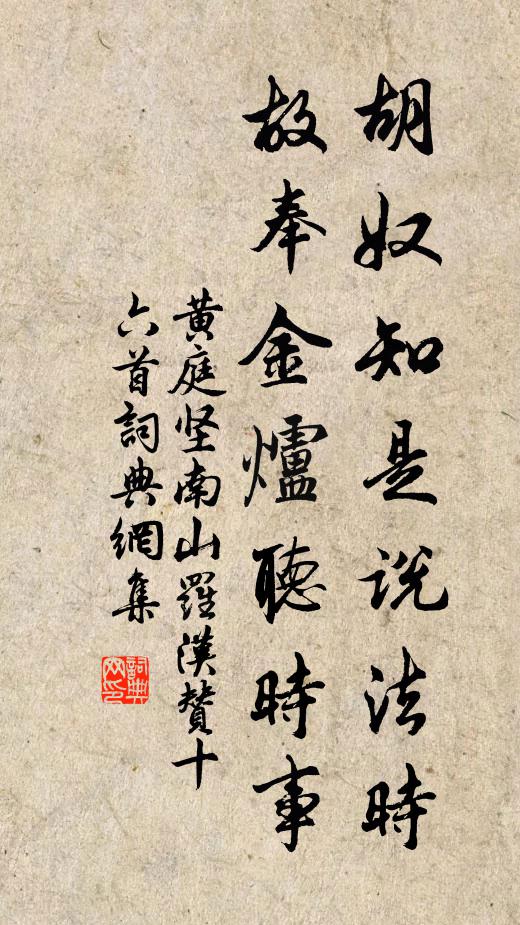 胡奴知是说法時
故奉金爐聽時事
黄庭坚南山羅漢贊十
六首詞典網集
詞典
网印